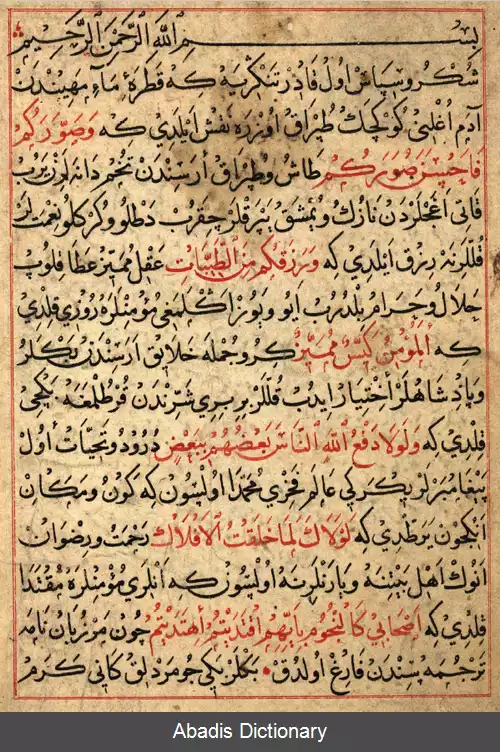 بِسْمِ ٱللَّهِ ٱلرَّحْمَنِ ٱلرَّحِيمِ
شُكْر و سِپَاسْ اُولْ قَادِرْ تَنْكْرِيَه كِه قَطْرَهٔ مَآءِ مَهِينْدَنْ
آدَمْ اُغْلَنِيْ كُوكْچَكْ طُپْرَاقْ اُوزْرَه نَقْشْ اَيْلَدِي كِه وَصَوَّرَكُمْ
فَاَحْسَنَ صُوَرَكُمْ طَاشْ وُ طُپْرَاقْ اَرَسِنْدَنْ تُخْمِ دَانَه لَرِنْ يَرُبْ
قَاتِي اَغَجْلَرْدَنْ نَازُكْ وُ يُمْشَقْ يَپْرَقْلَرْ چِقَرُبْ دَطْلُو وُ كُرْكْلُو نِعْمَتْلَرْ
قُلْلَرِنَه رِزِقْ اَيْلَدِي كِه وَرَزَقَكُمْ مِنَ ٱلطَّيِّبَاتِ عَقْلِ مُمَيِّزْ عَطَا قِلُوبْ
حَلَالْ وُ حَرَامْ بِلْدُرُبْ اَيُو وَ يَوُزْ اَكْلَمَغِي مُؤْمِنْلَرَه رُوزِي قِلْدِي
كِه اَلْمُؤْمِنُ كَيِّسٌ مُمَيِّزٌ كِرُو جُمْلَه خَلَايِقْ اَرَسِنْدَنْ بَكْلَرْ
وَ پَادِشَاهْلَرْ اِخْتِيَارْ اِيدُبْ قُلْلَرْ بِرْ بِرِي شَرِّنْدَنْ قُرْطُلْمَغَه يَكْچِي
قِلْدِي كِه وَلَوْلَا دَفْعُ ٱللَّهِ ٱلنَّاسَ بَعْضَهُمْ بِبَعْضٍ دُرُودْ وُ تَحِيَّاتْ اُولْ
پَيْغَامْبَرْلَرْ يِكْرَكِي عَالَمْ فَخْرِي مُحَمَّدَه اُولْسُونْ كِه كَوْنْ وُ مَكَانْ
اَنُكِچُونْ يَرَطْدِي كِه لَوْلَاكَ لَمَا خَلَقْتُ ٱلْاَفْلَاكَ رَحْمَتْ وُ رِضْوَانْ
اَنُوكْ اَهْلِ بَيْتِنَه وَ يَارَنْلَرِنَه اُولْسُونْ كِه اَنْلَرِي مُؤْمِنْلَرَه مُقْتَدَا
قِلْدِي كِه اَصْحَابِي كَالنُّجُومِ بِاَيِّهِمْ اِقْتَدَيْتُمْ اِهْتَدَيْتُمْ چُونْ مَرْزُبَانْ نَامَه
تَرْجَمَه سِنْدَنْ فَارِغْ اُولْدُقْ بَكْلَرْ يِكِي جُومَرْدْلِقْ كَانِي كَرَمْ
Abadis Dictionary